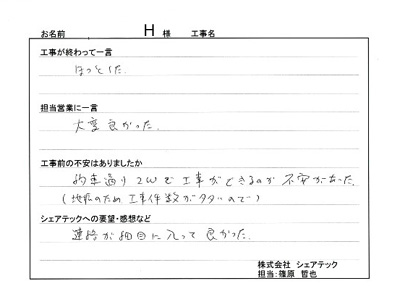 お名前 H 様 工事名
工事が終わって一言
ほっとした.
担当営業に一言
大変良かった.
工事前の不安はありましたか
約束通り2Wで工事ができるか不安があった.
(地震のため工事件数が多数なので)
シェアテックへの要望・感想など
連絡が細目に入って良かった.
株式会社 シェアテック
担当:篠原 哲也